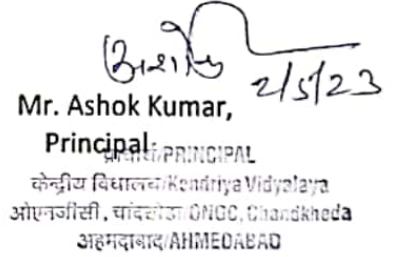 अशोक
2/5/23
Mr. Ashok Kumar,
Principal
प्राचार्य/PRINCIPAL
केन्द्रीय विद्यालय/Kendriya Vidyalaya
ओएनजीसी, चांदखेडा/ONGC, Chandkheda
अहमदाबाद/AHMEDABAD